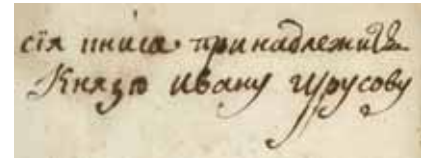 сія книга принадлежитъ
Князю Ивану Урусову